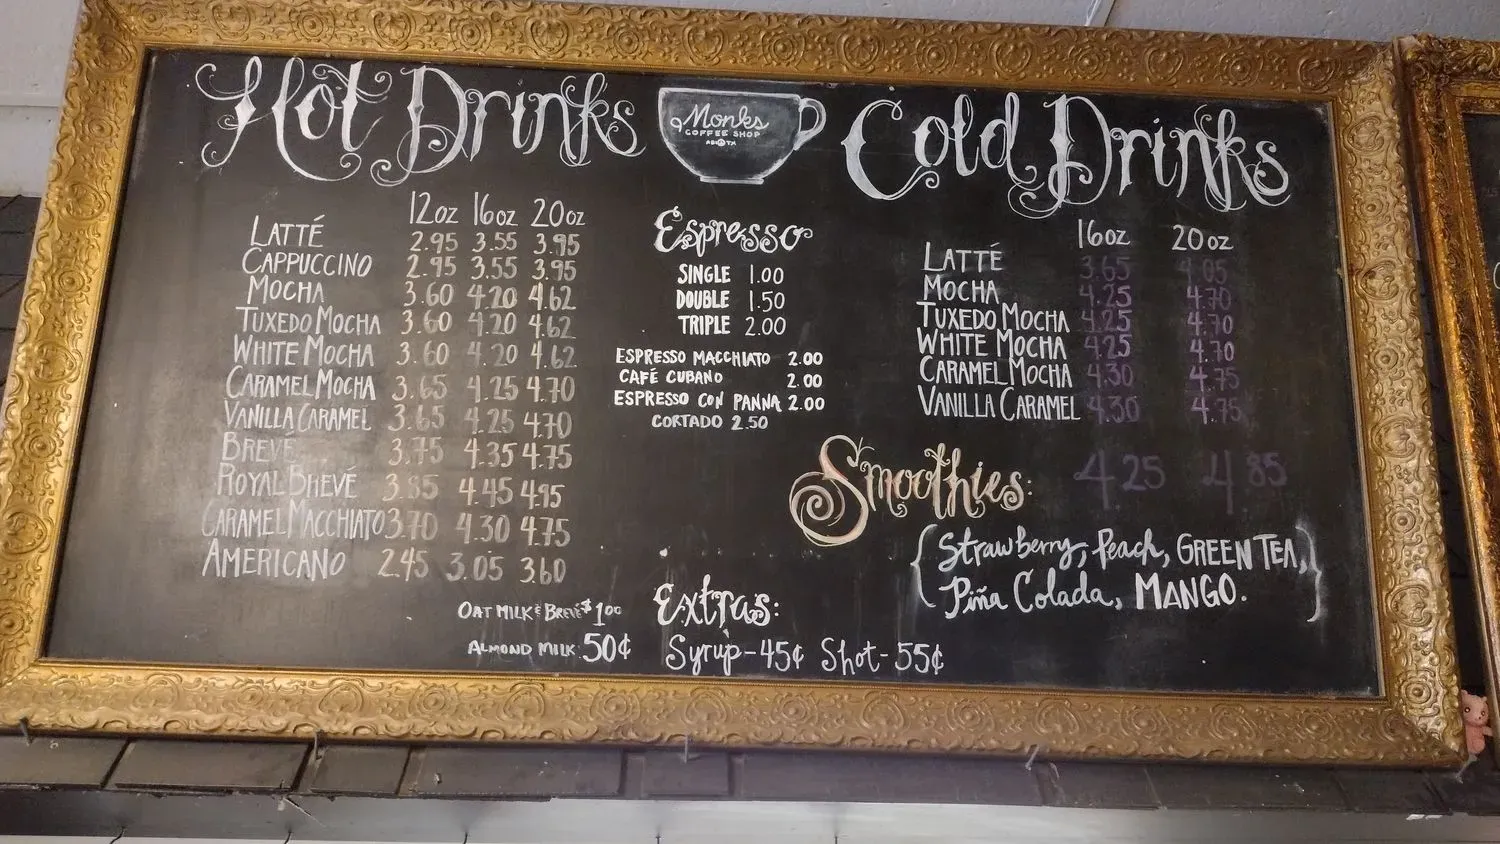 Hot Drinks
12oz 16oz 20oz
LATTÉ 2.95 3.55 3.95
CAPPUCCINO 2.95 3.55 3.95
MOCHA 3.60 4.20 4.62
TUXEDO MOCHA 3.60 4.20 4.62
WHITE MOCHA 3.60 4.20 4.62
CARAMEL MOCHA 3.65 4.25 4.70
VANILLA CARAMEL 3.65 4.25 4.70
BREVÉ 3.75 4.35 4.75
ROYAL BREVÉ 3.85 4.45 4.95
CARAMEL MACCHIATO 3.70 4.30 4.75
AMERICANO 2.45 3.05 3.60
OAT MILK & BREVÉ $1.00
ALMOND MILK 50¢
Monks
COFFEE SHOP
Espresso
SINGLE 1.00
DOUBLE 1.50
TRIPLE 2.00
ESPRESSO MACCHIATO 2.00
CAFÉ CUBANO 2.00
ESPRESSO CON PANNA 2.00
CORTADO 2.50
Extras:
Syrup-45¢ Shot-55¢
Cold Drinks
16oz 20oz
LATTÉ 3.65 4.05
MOCHA 4.25 4.70
TUXEDO MOCHA 4.25 4.70
WHITE MOCHA 4.25 4.70
CARAMEL MOCHA 4.30 4.75
VANILLA CARAMEL 4.30 4.75
Smoothies: 4.25 4.85
{Strawberry, Peach, GREEN TEA,
Piña Colada, MANGO.}